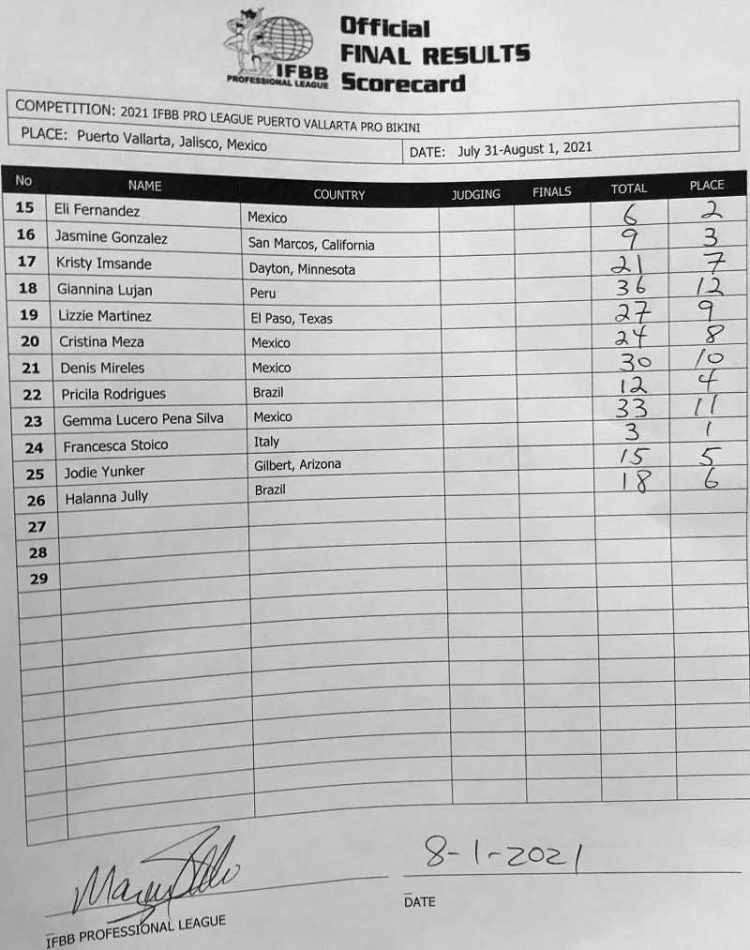 Official
FINAL RESULTS
Scorecard
IFBB
PROFESSIONAL LEAGUE
COMPETITION: 2021 IFBB PRO LEAGUE PUERTO VALLARTA PRO BIKINI
PLACE: Puerto Vallarta, Jalisco, Mexico DATE: July 31-August 1, 2021
No NAME COUNTRY JUDGING FINALS TOTAL PLACE
15 Eli Fernandez Mexico 6 2
16 Jasmine Gonzalez San Marcos, California 9 3
17 Kristy Imsande Dayton, Minnesota 21 7
18 Giannina Lujan Peru 36 12
19 Lizzie Martinez El Paso, Texas 27 9
20 Cristina Meza Mexico 24 8
21 Denis Mireles Mexico 30 10
22 Pricila Rodrigues Brazil 12 4
23 Gemma Lucero Pena Silva Mexico 33 11
24 Francesca Stoico Italy 3 1
25 Jodie Yunker Gilbert, Arizona 15 5
26 Halanna Jully Brazil 18 6
27
28
29
8-1-2021
IFBB PROFESSIONAL LEAGUE DATE